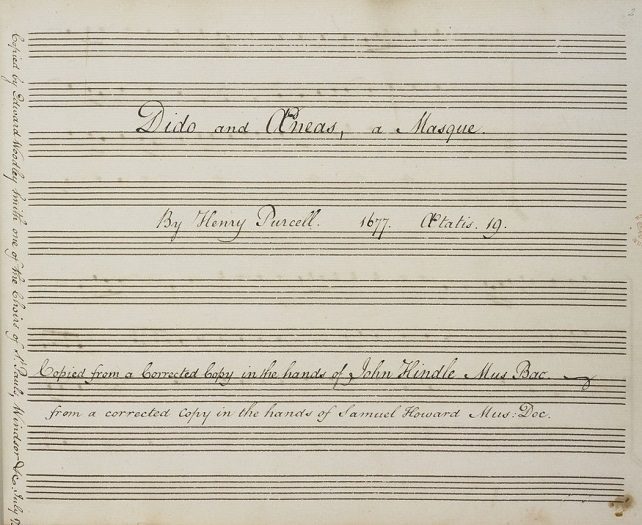 Dido and Æneas, a Masque.
By Henry Purcell. 1677. Ætatis. 19.
Copied from a Corrected Copy in the hands of John Hindle Mus Bac.
from a corrected Copy in the hands of Samuel Howard Mus: Doc.
Copied by Edward Woodley Smith one of the Choirs of St. Pauls, Windsor &c. July